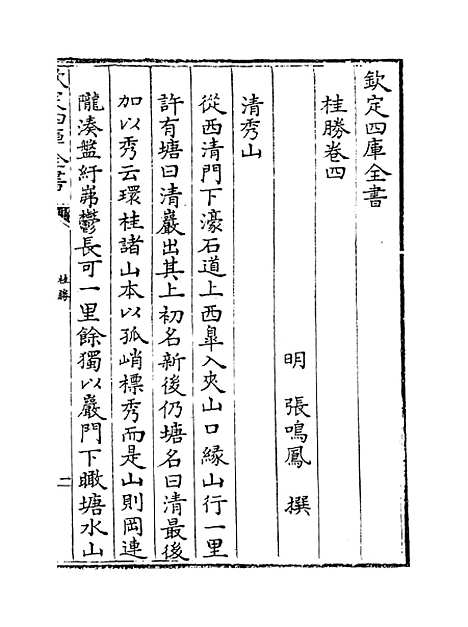 欽定四庫全書
桂勝卷四
明 張鳴鳳 撰
清秀山
從西清門下濠石道上西臯入夾山口緣山行一里
許有塘曰清巖出其上初名新後仍塘名曰清最後
加以秀云環桂諸山本以孤峭標秀而是山則岡連
隴湊盤紆岪鬱長可一里餘獨以巖門下瞰塘水山
欽定四庫全書
桂勝